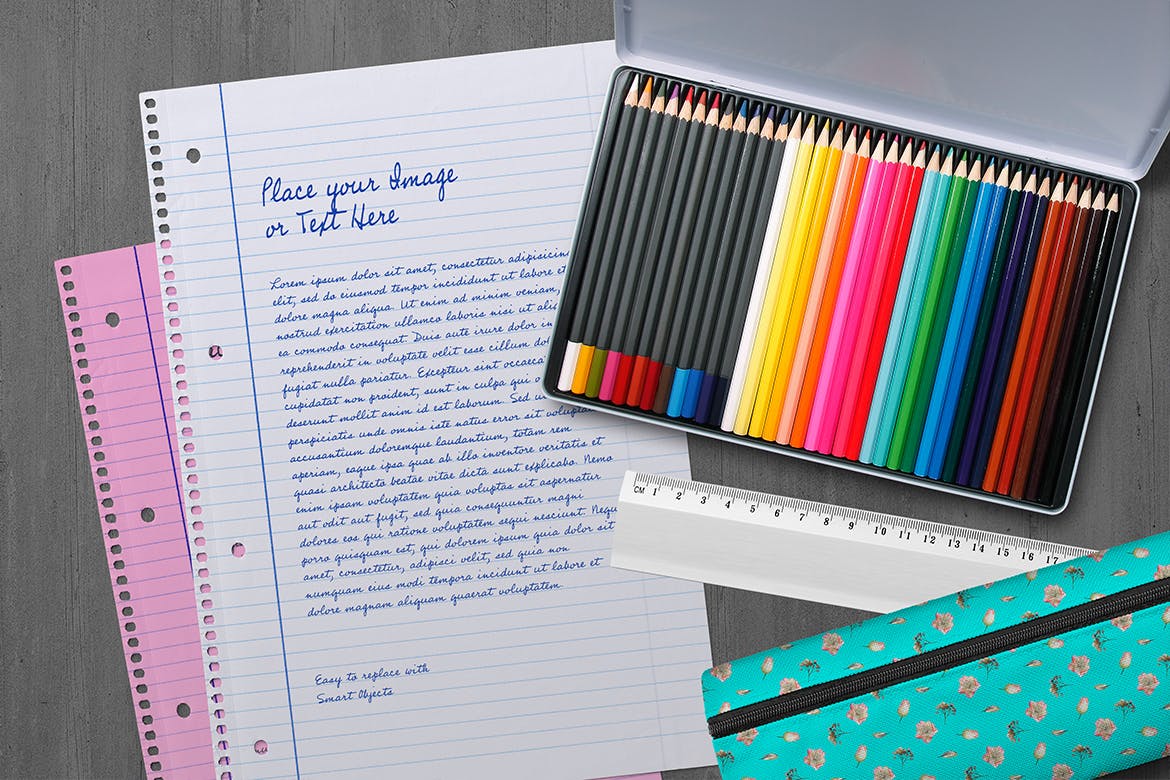 Place your Image
or Text Here
Lorem ipsum dolor sit amet, consectetur adipisicing
elit, sed do eiusmod tempor incididunt ut labore et
dolore magna aliqua. Ut enim ad minim veniam,
nostrud exercitation ullamco laboris nisi ut
ea commodo consequat. Duis aute irure dolor in
reprehenderit in voluptate velit esse cillum
fugiat nulla pariatur. Excepteur sint occaeca
cupidatat non proident, sunt in culpa qui
deserunt mollit anim id est laborum. Sed
perspiciatis unde omnis iste natus error sit
accusantium doloremque laudantium, totam rem
aperiam, eaque ipsa quae ab illo inventore veritatis et
quasi architecto beatae vitae dicta sunt explicabo. Nemo
enim ipsam voluptatem quia voluptas sit aspernatur
aut odit aut fugit, sed quia consequuntur magni
dolores eos qui ratione voluptatem sequi nesciunt. Neque
porro quisquam est, qui dolorem ipsum quia dolor sit
amet, consectetur, adipisci velit, sed quia non
numquam eius modi tempora incidunt ut labore et
dolore magnam aliquam quaerat voluptatem.
Easy to replace with
Smart Objects
CM 1 2 3 4 5 6 7 8 9 10 11 12 13 14 15 16 17